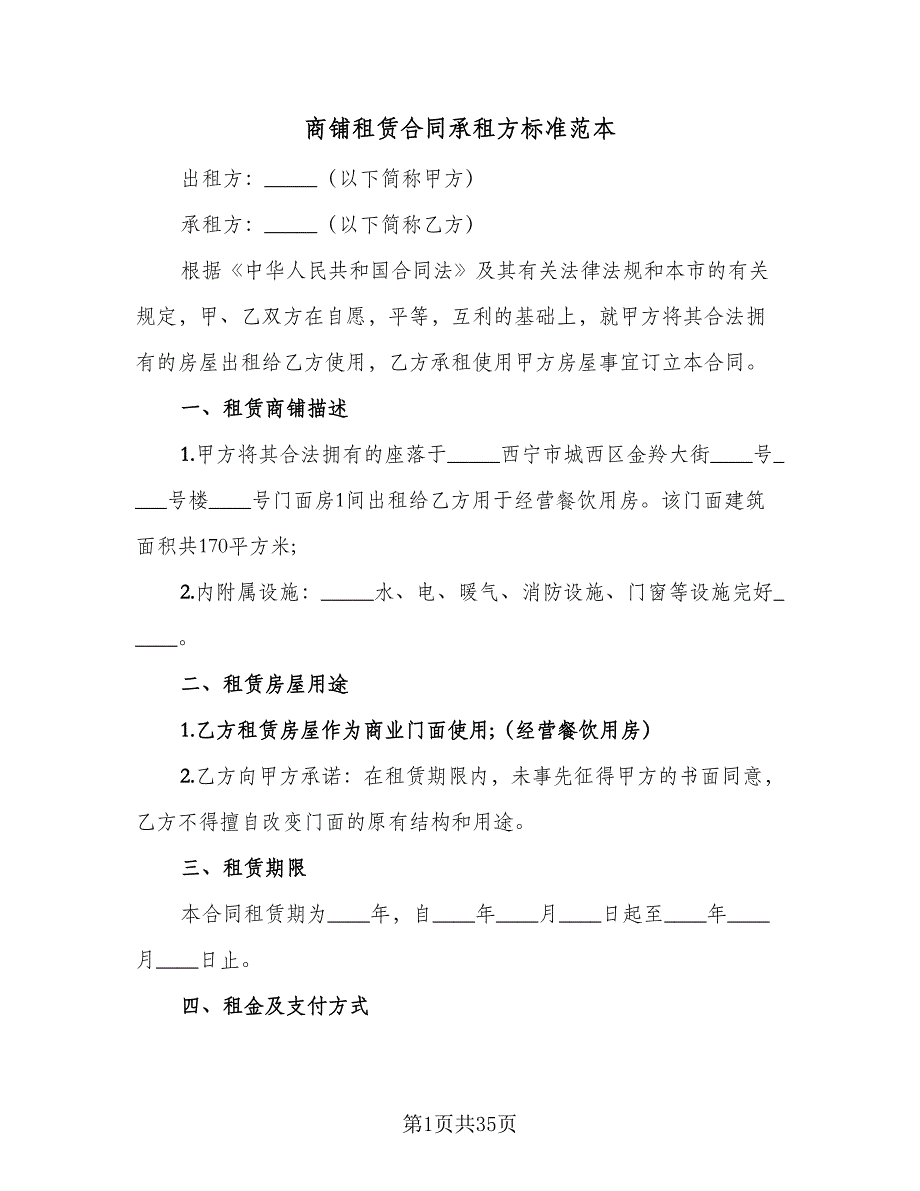 商铺租赁合同承租方标准范本
出租方：_____（以下简称甲方）
承租方：_____（以下简称乙方）
根据《中华人民共和国合同法》及其有关法律法规和本市的有关
规定，甲、乙双方在自愿，平等，互利的基础上，就甲方将其合法拥
有的房屋出租给乙方使用，乙方承租使用甲方房屋事宜订立本合同。
一、租赁商铺描述
1.甲方将其合法拥有的座落于_____西宁市城西区金羚大街____号_
___号楼____号门面房1间出租给乙方用于经营餐饮用房。该门面建筑
面积共170平方米;
2.内附属设施：_____水、电、暖气、消防设施、门窗等设施完好_
____。
二、租赁房屋用途
1.乙方租赁房屋作为商业门面使用;（经营餐饮用房）
2.乙方向甲方承诺：在租赁期限内，未事先征得甲方的书面同意，
乙方不得擅自改变门面的原有结构和用途。
三、租赁期限
本合同租赁期为____年，自____年____月____日起至____年____
月____日止。
四、租金及支付方式
第1页共35页